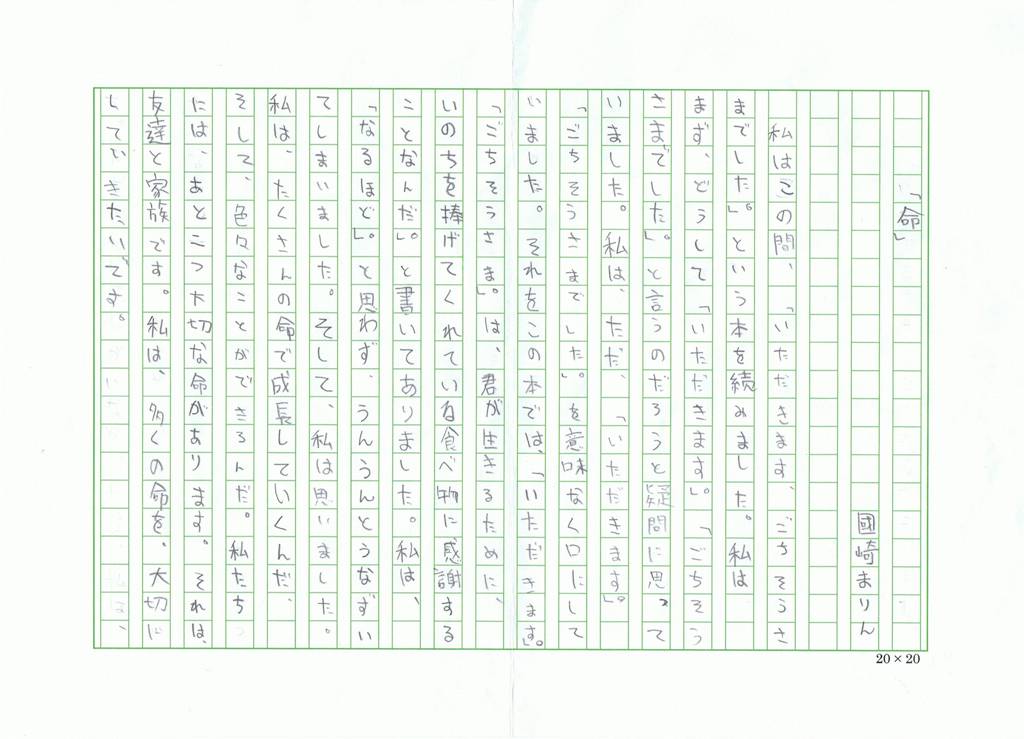 「命」
國崎まりん
私はこの間、「いただきます、ごちそうさ
までした」。という本を続みました。私は
まず、どうして「いただきます」。「ごちそう
さまでした」。と言うのだろうと疑問に思って
いました。私は、ただ、「いただきます」。
「ごちそうさまでした」。を意味なく口にして
いました。それをこの本では、「いただきます」。
「ごちそうさま」。は、君が生きるために、
いのちを捧げてくれている食べ物に感謝する
ことなんだ」。と書いてありました。私は、
「なるほど」。と思わず、うんうんとうなずい
てしまいました。そして、私は思いました。
私は、たくさんの命で成長していくんだ、
そして、色々なことができるんだ。私たち
には、あと二つ大切な命があります。それは、
友達と家族です。私は、多くの命を、大切に
していきたいです。
20×20